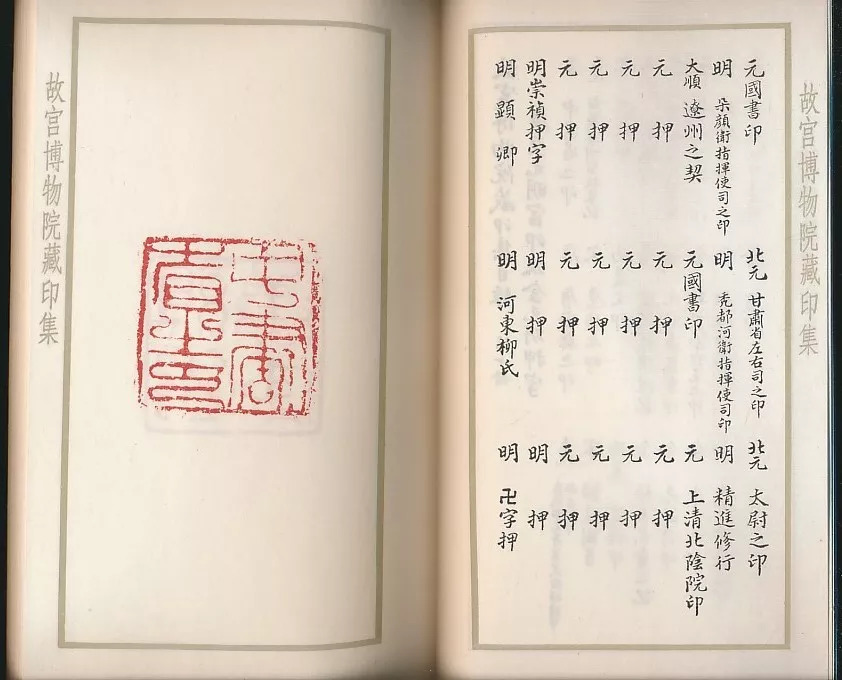 故宮博物院藏印集
元國書印 北元 甘肅省左右司之印 北元 太尉之印
明 朵顏衛指揮使司之印 明 秃都河衛指揮使司印 明 精進修行
大順 遼州之契 元國書印 元 上清北陰院印
元 押 元 押 元 押
元 押 元 押 元 押
元 押 元 押 元 押
元 押 元 押 元 押
明崇禎押字 明 押 明 押
明 顯卿 明 河東柳氏 明 卍字押
故宮博物院藏印集